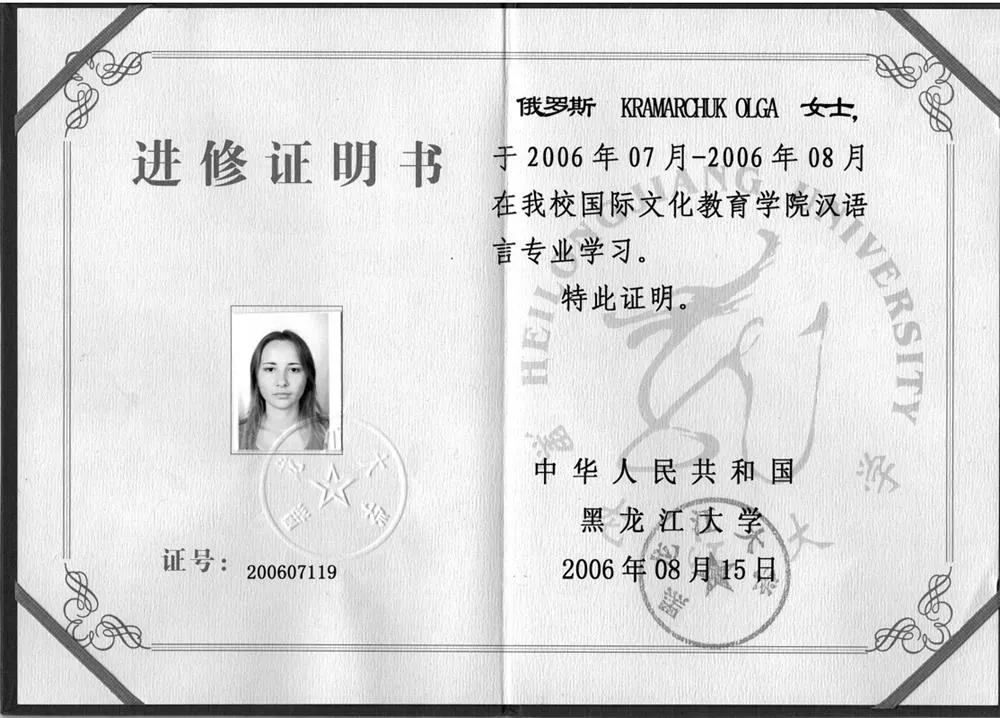 进修证明书
证号：200607119
俄罗斯 KRAMARCHUK OLGA 女士，
于2006年07月-2006年08月
在我校国际文化教育学院汉语
言专业学习。
特此证明。
HEILONGJIANG UNIVERSITY
中华人民共和国
黑龙江大学
2006年08月15日
黑龙江大学
黑龙江大学
黑龙江大学